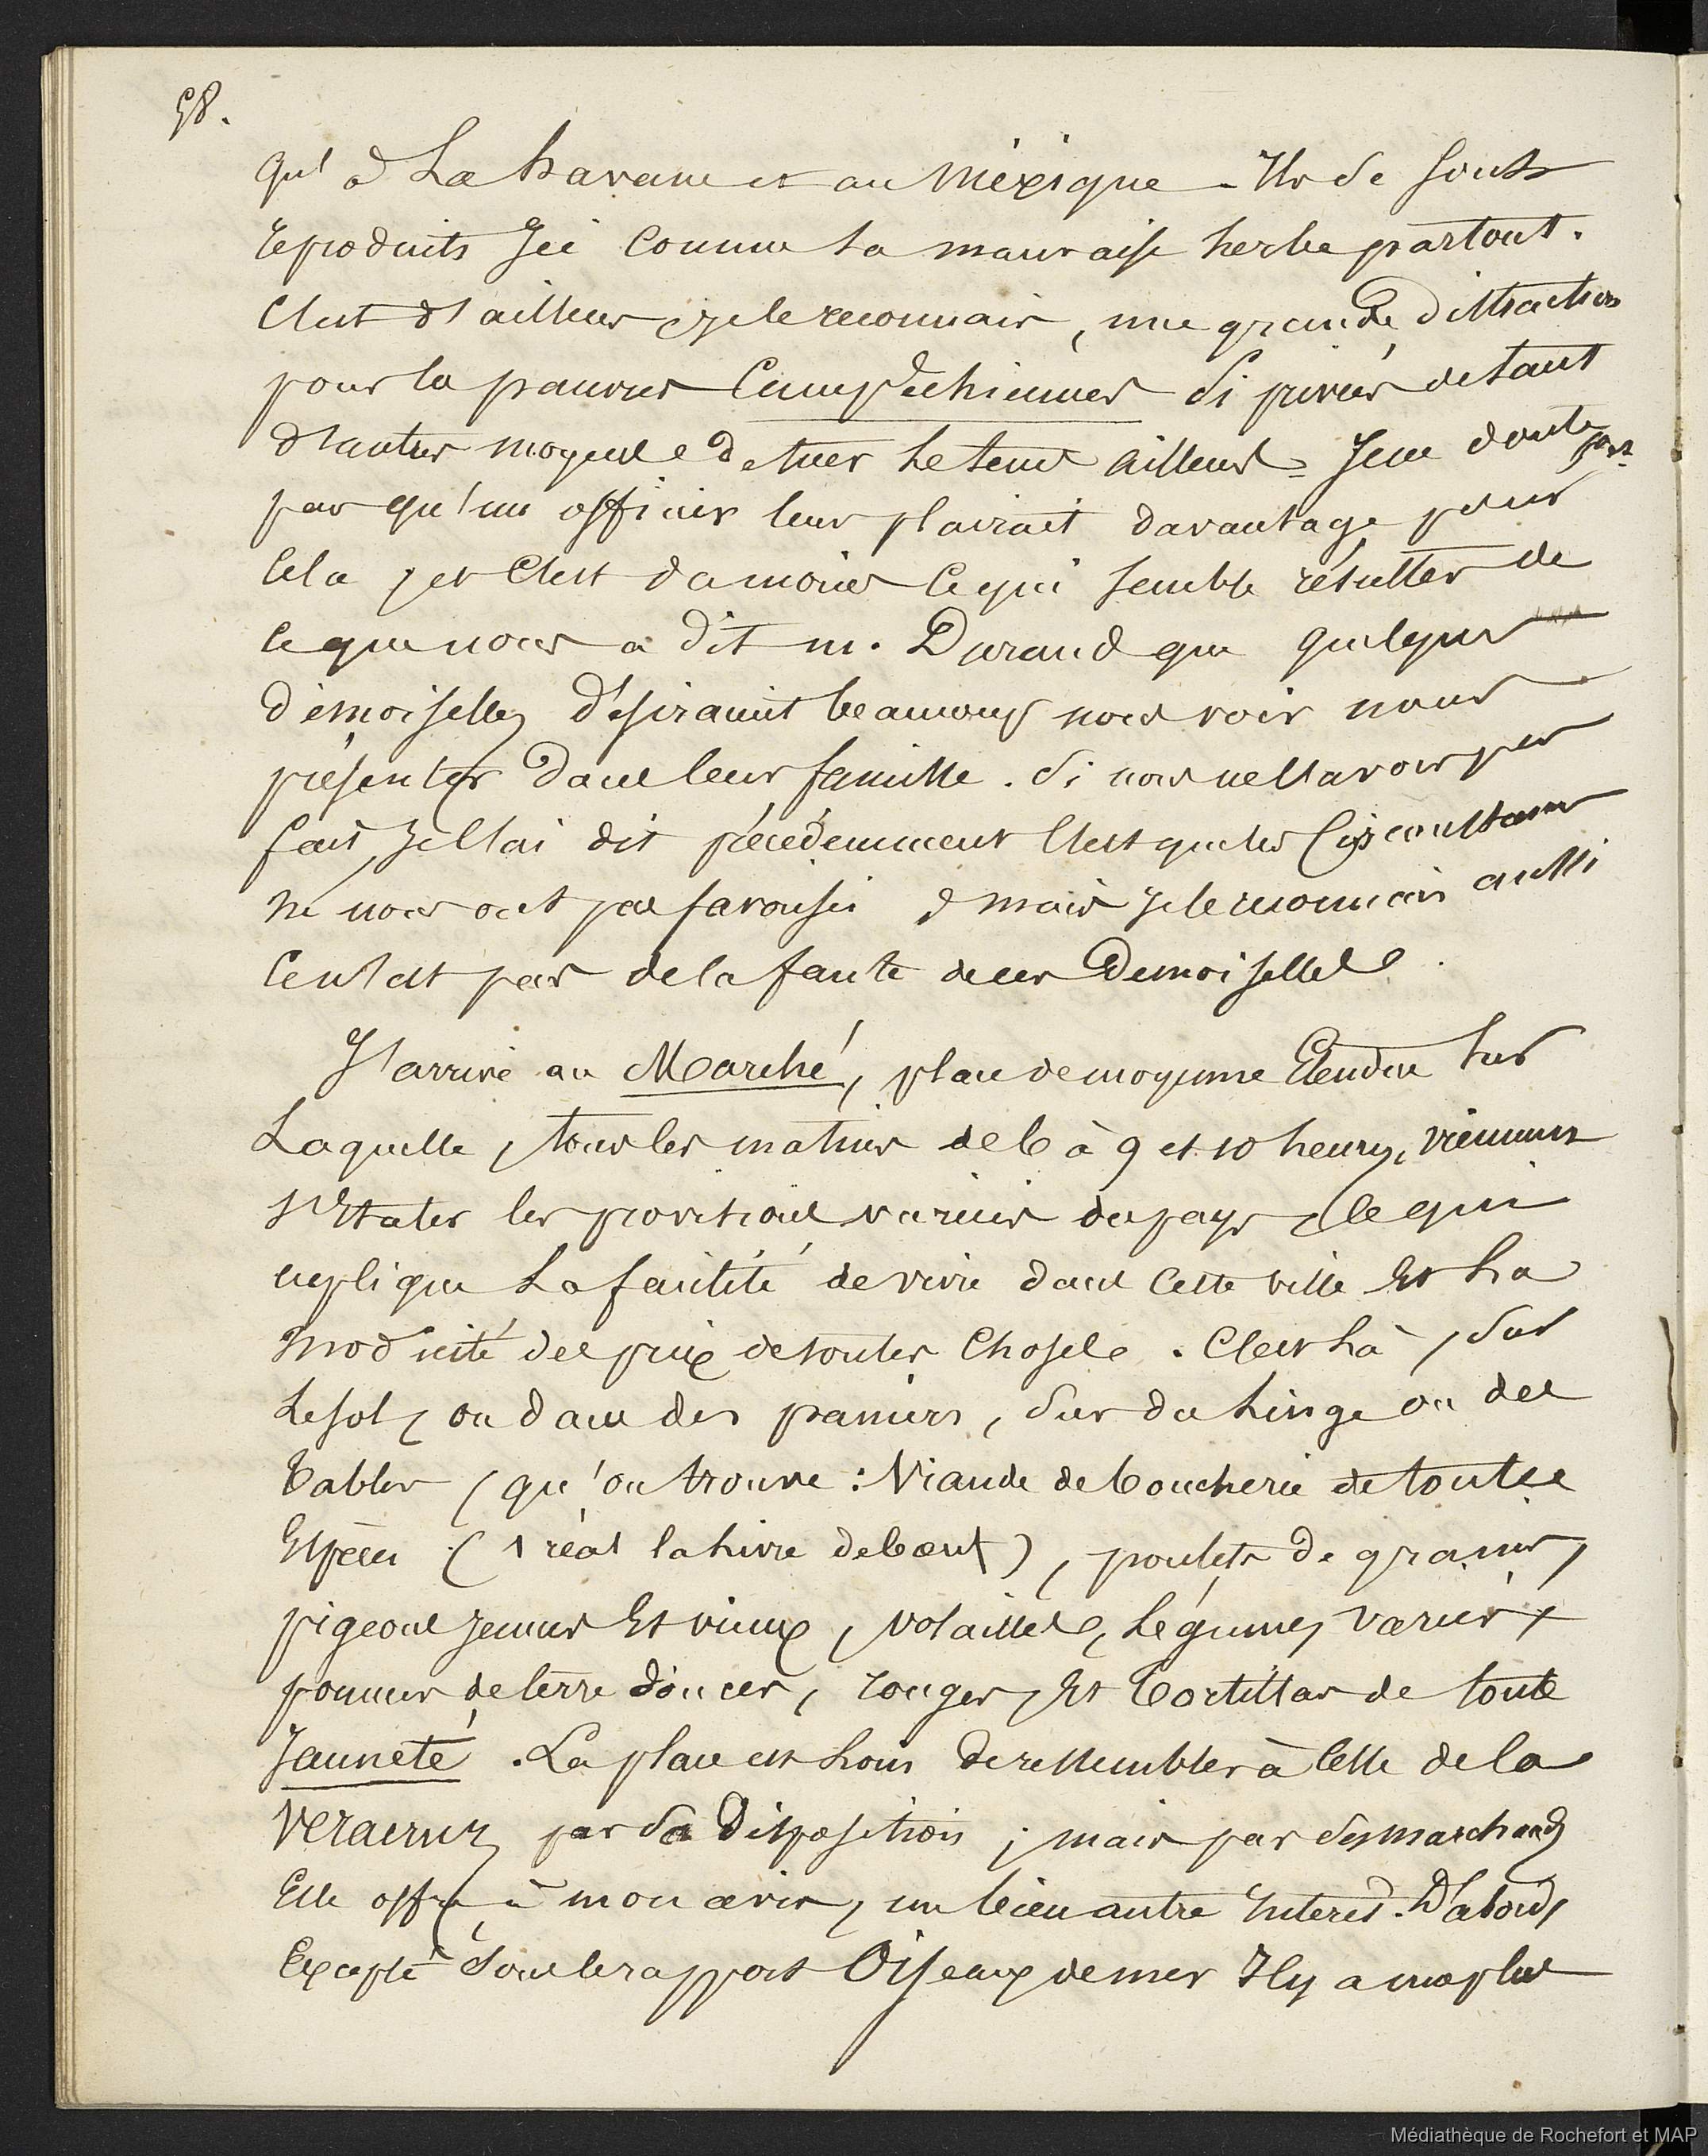 58.
qu'à La havane et au Méxique - Ils se sont
reproduits Ici comme la mauvaise herbe partout.
C'est d'ailleurs, je le reconnais, une grande distraction
pour les pauvres Campêchiennes si privées de tant
d'autres moyens de tuer le tems ailleurs - Je ne doute pas
par qu'un officier leur plairait davantage pour
cela, et c'est du moins ce qui semble résulter de
ce que nous a dit M. Durand que quelques
demoiselles désiraient beaucoup nous voir nous
présenter dans leur famille. Si nous ne l'avons pas
fait, je l'ai dit précédemment c'est que les circonstances
ne nous ont pas favorisés, mais je le reconnais aussi
ce n'est pas de la faute de ces Demoiselles.
J'arrive au Marché, place de moyenne Etendue sur
Laquelle, tous les matins de 6 à 9 et 10 heures, viennent
s'Etaler les provisions variées du pays, ce qui
explique La facilité de vivre dans cette ville Et La
modicité des prix de toutes choses. C'est Là, sur
Le sol, ou dans des paniers, sur du Linge ou des
tables, qu'on trouve : Viande de boucherie de toutes
Espèces (1 réal la livre de bœuf), poulets de grains,
pigeons jeunes Et vieux, volailles, Légumes variés,
pommes de terre douces, rouges, Et tortillas de toute
Jauneté. La place est Loin de ressembler à celle de la
Veracruz par sa disposition ; mais par ses marchands
Elle offre, à mon avis, un bien autre Interêt. D'abord,
Excepté sous le rapport Oiseaux de mer Il y a une plus
Médiathèque de Rochefort et MAP